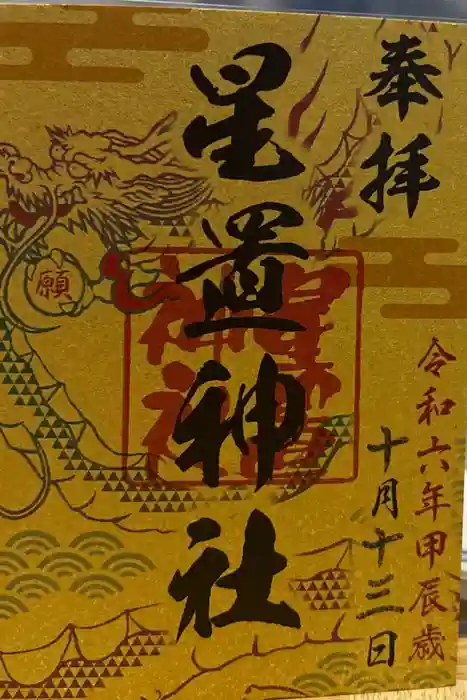 奉拝
令和六年甲辰歳
十月十三日
星置神社
願